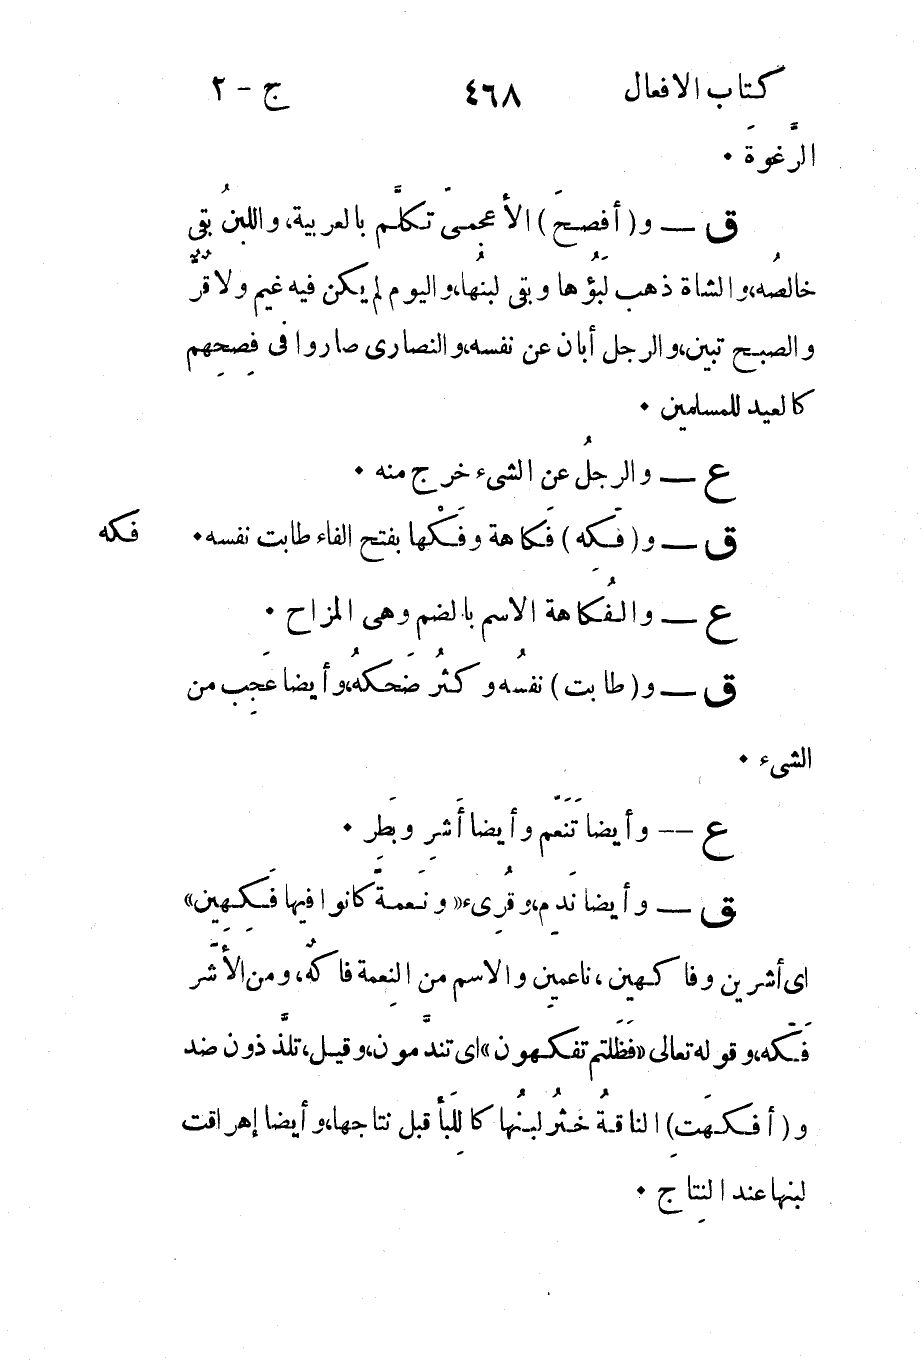 كتاب الافعال ٤٦٨ ج - ٢
الرَّغوةَ ٠
ق — و (أفصحَ) الأعجمىّ تكلَّم بالعربية، واللبنُ بقى
خالصُه، والشاة ذهب لَبَؤُها وبقى لبنُها، واليوم لم يكن فيه غيم ولا قُرٌّ
والصبح تبين، والرجل أبان عن نفسه، والنصارى صاروا فى فِصحِهم
كالعيد للمسلمين ٠
ع — والرجلُ عن الشىء خرج منه ٠
ق — و (فَكِه) فَكاهة وفَكْها بفتح الفاء طابت نفسه ٠ فكه
ع — والفُكاهة الاسم بالضم وهى المزاح ٠
ق — و (طابت) نفسُه وكثُر ضَحكهُ، وأيضا عَجِب من
الشىء ٠
ع -- وأيضا تَنَعَّم وأيضا أَشرِ وبَطِر ٠
ق — وأيضا نَدِم، وقُرِىء «ونَعمةً كانوا فيها فَكِهِين»
اى أشرين وفاكهين، ناعمين والاسم من النِعمة فاكهٌ، ومن الأَشَر
فَكّه، وقوله تعالى «فَظَلَتم تفكهون» اى تندَّمون، وقيل، تلذَّذون ضد
و (أفكهَتِ) الناقةُ خثُر لبنُها كاللِبَأ قبل نتاجها، وأيضا إهراقت
لبنها عند النِتاج ٠